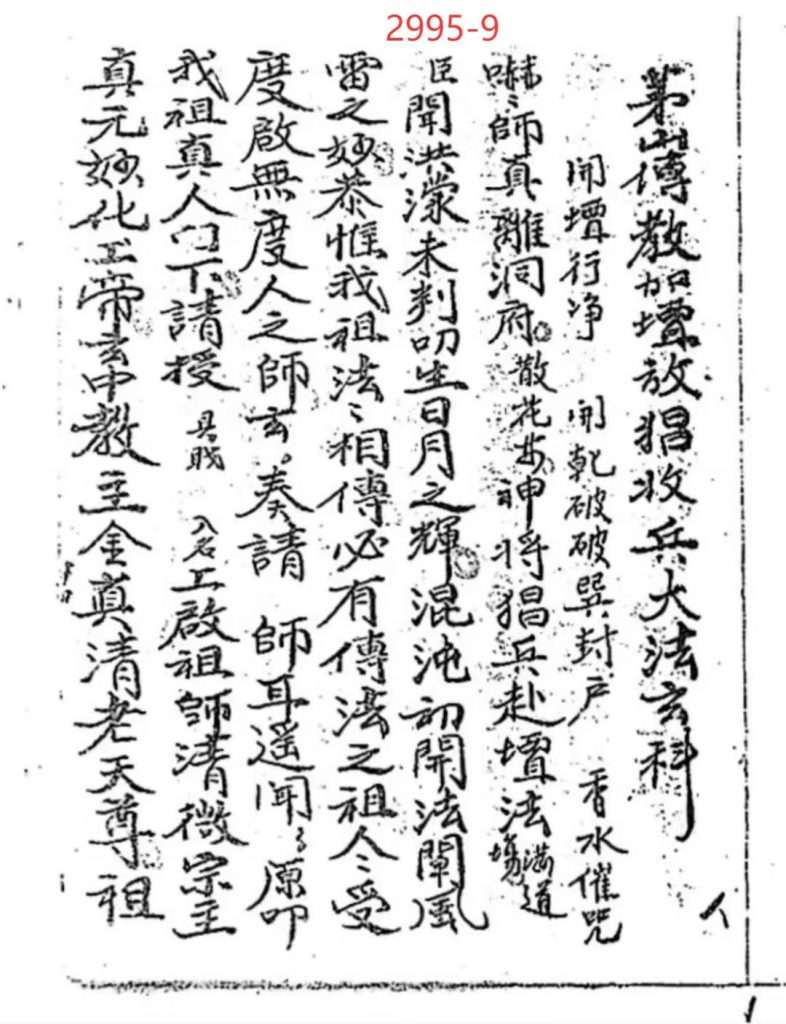 2995-9
茅山傳教加壇放猖收兵大法玄科
開壇行净 開乾破破巽封户 香水催咒
嚇〻師真離洞府散花步神將猖兵赴壇法滿道場
臣聞洪濛未判叨生日月之輝混沌初開法闡風
雷之妙恭惟我祖法〻相傳必有傳法之祖人〻受
度啟無度人之師玄奏請 師耳遥聞〻原叩
我祖真人門下請授 具戝 入名工啟祖師清微宗主
真元妙化工帝玄中教主金真清老天尊祖